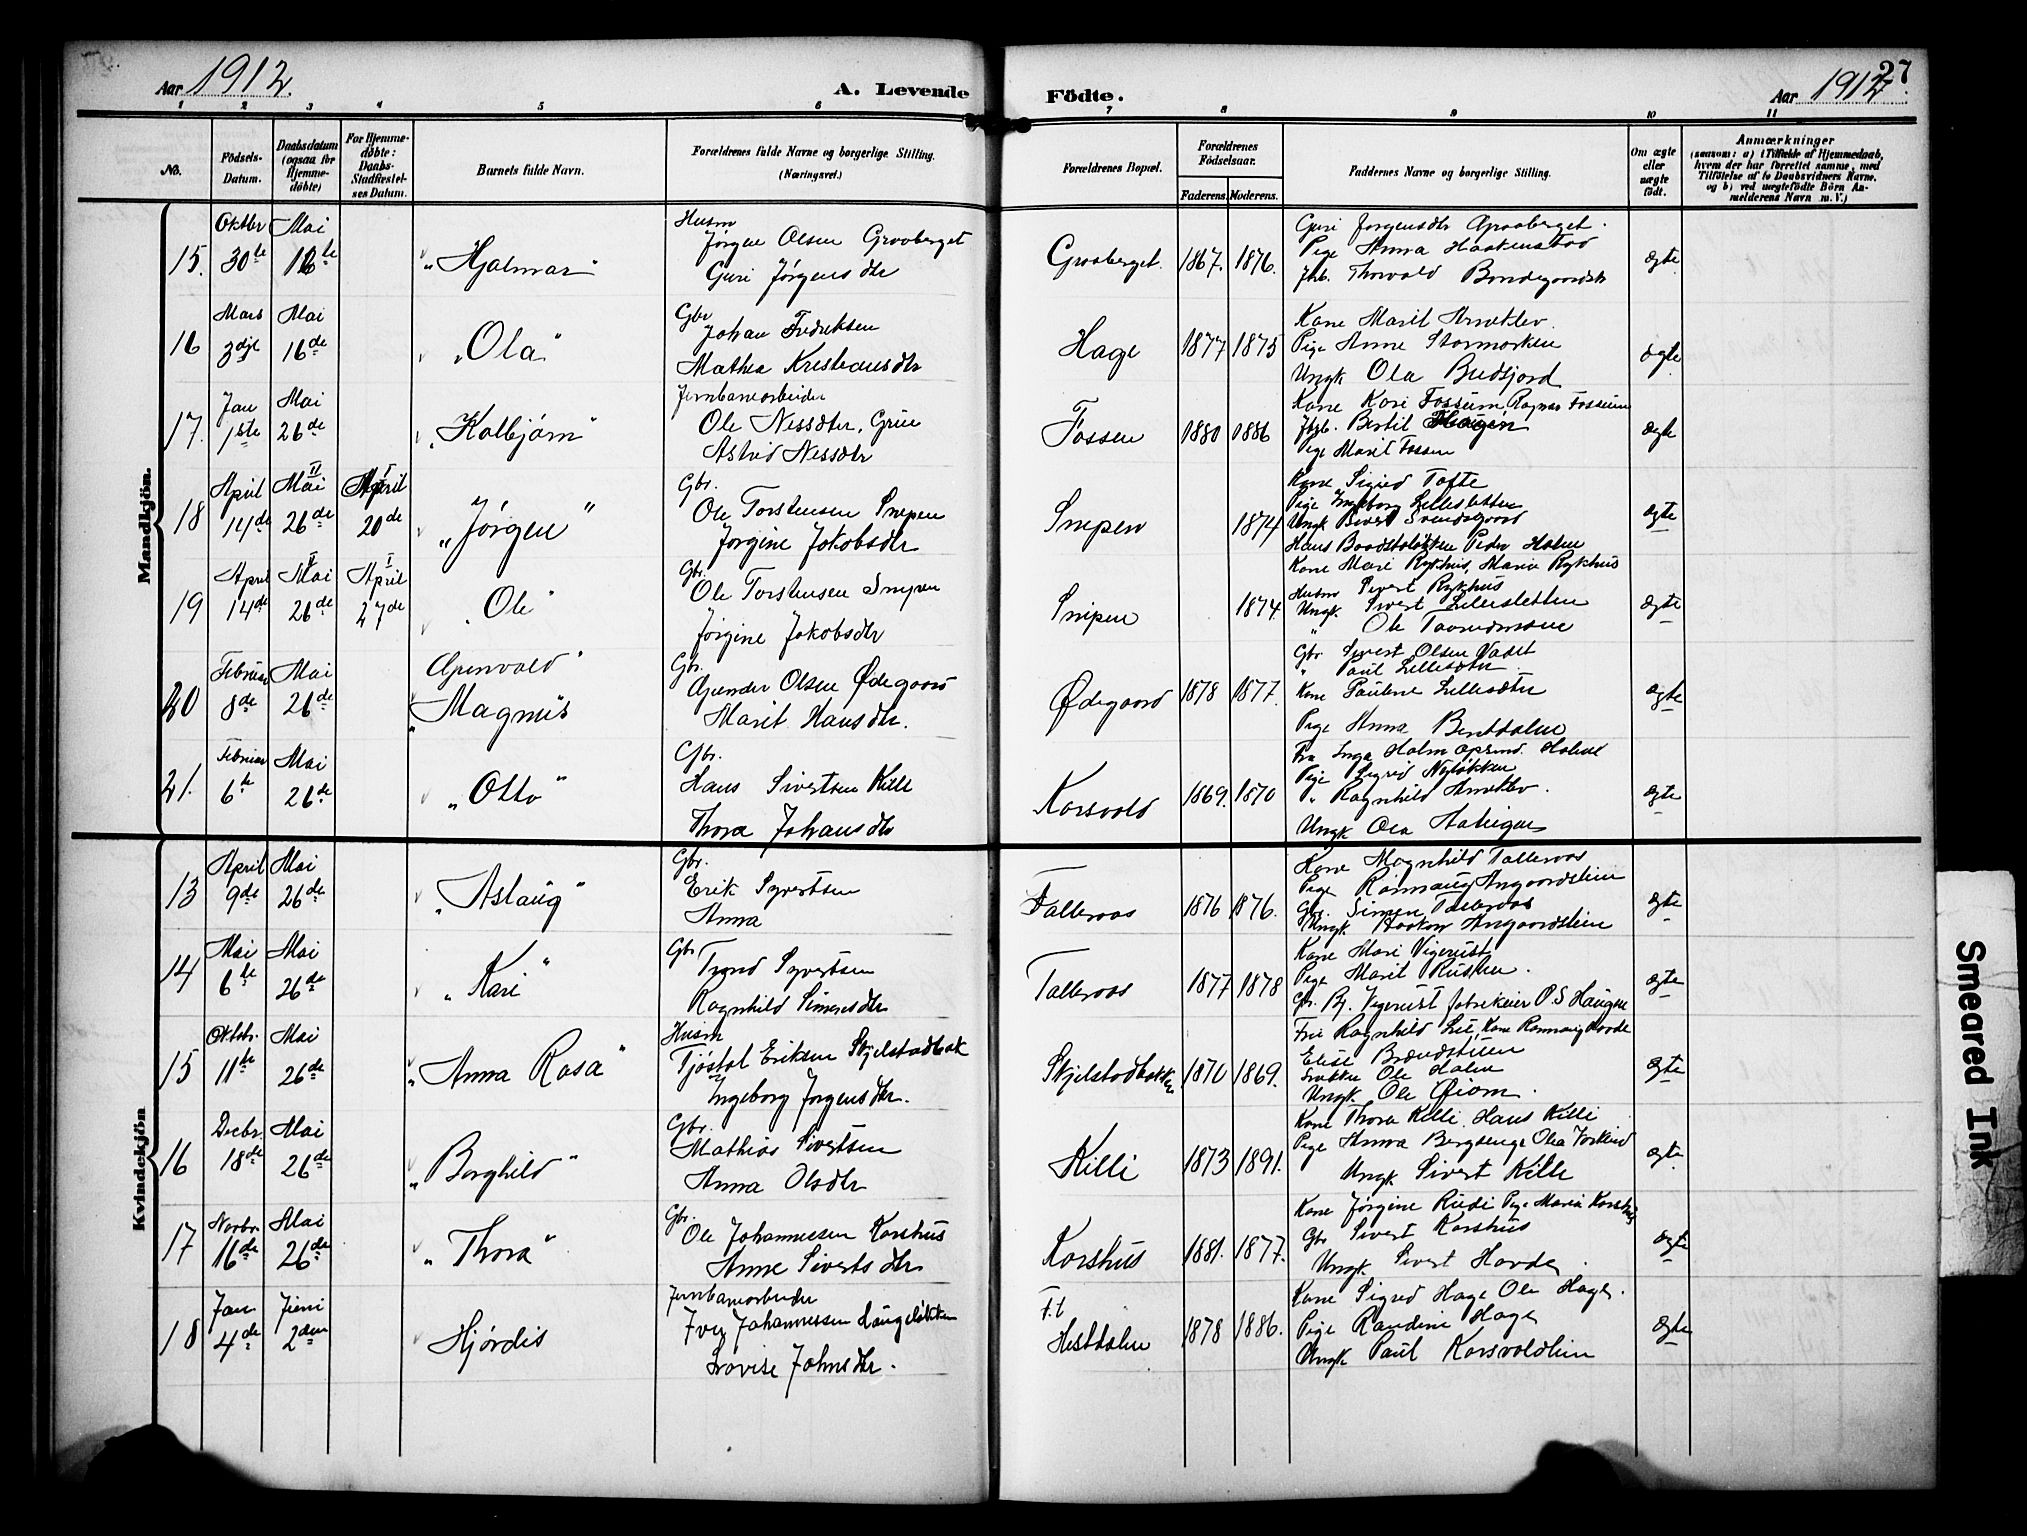 Aar 1912.
A. Levende
Födte.
Aar 1912.
27
1 2 3 4 5 6 7 8 9 10 11
No.
Födsels-
Datum.
Daabsdatum
(ogsaa for
Hjemme-
döbte)
For Hjemme-
döbte:
Daabs-
Stadfæstel-
ses Datum.
Barnets fulde Navn.
Forældrenes fulde Navne og borgerlige Stilling.
(Næringsvei.)
Forældrenes Bopæl.
Forældrenes
Födselsaar.
Faderens. Moderens.
Faddernes Navne og borgerlige Stilling.
Om ægte
eller
uægte
födt.
Anmærkninger
(saasom: a) i Tilfælde af Hjemmedaab,
hvem der har forrettet samme, med
Tilföielse af to Daabsvidners Navne,
og b) ved uægtefödte Börn An-
melderens Navn m. V.)
Mandkjön.
15. Oktbr 30te Mai
"Hjalmar"
Husm
Jørgen Olsen Graaberget
Guri Jørgensdtr
Graaberget. 1867. 1876.
Guri Jørgensdtr Graaberget.
Pige Anna Haakenstad
Thorvald
ægte
16 Mars 3dje Mai 16de
"Ola"
Gbr
Johan Fredriksen
Mathea Kristiansdtr
Hage 1877 1875
Kone Marit
Pige Anne Stormorken
Ungk Ola Budsjord
ægte
17. Jan 1ste Mai 26de
"Kolbjørn"
Jernbanearbeider
Ole
Astrid
Fossen 1880 1886
Kone Kari Fossum, Ragnar Fossum
Bertil Haugen
Pige Marit Fossen
ægte
18 April 14de Mai II 26de April I 20de
"Jørgen"
Gbr.
Ole Torstensen Snipen
Jørgine Jakobsdtr
Snipen 1874
Kone Sigrid Tofte
Pige Ingeborg Lillesletten
Ungk Sivert
Hans Peder Holen
ægte
19 April 14de Mai II 26de April I 27de
"Ole"
Gbr.
Ole Torstensen Snipen
Jørgine Jakobsdtr
Snipen 1874.
Kone Mari Rykhus, Maria Rykhus
Husm Sivert Rykhus
Ungk. Sivert Lillesletten
" Ole
ægte
20 Februar 8de Mai 26de
Magnus"
Gbr.
Olsen Ødegaard
Marit Hansdtr.
Ødegaard 1878 1877.
Gbr Sivert Olsen
" Paul
Kone Pauline
Pige Anna
ægte
21. Februar 6te Mai 26de
"Otto"
Gbr.
Hans Sivertsen Kille
Thora Johansdtr
Korsvold 1869. 1870
Inga Holm
Pige Sigrid Nyløkken
" Ragnhild
Ungk Ola
ægte
Kvindekjön
13 April 9de Mai 26de
"Aslaug"
Gbr.
Erik Syvertsen
Anna
Talleraas 1876 1876.
Kone Magnhild Talleraas
Pige Rannaug Angaardslien
Gbr. Simen Talleraas
Ungk Haakon Angaardslien
ægte
14 Mai 6te Mai 26de
"Kari"
Gbr
Trond Syvertsen
Ragnhild Simensdtr
Talleraas 1877 1878
Kone Mari Vigerust
Pige Marit
Vigerust O. S. Haugen
ægte
15 Oktbr. 11te Mai 26de
"Anna Rosa"
Husm
Tjøstol Eriksen Skjelstadbak
Ingeborg Jørgensdtr.
Skjelstadbakken 1870 1869.
Ragnhild Lie, Kone Rannaug
Elise
Ole Holen
Ungk Ole
ægte
16 Decbr. 18de Mai 26de
"Borghild"
Gbr.
Mathias Sivertsen
Anna Olsdtr
Killi 1873 1891.
Kone Thora Killi, Hans Killi
Pige Anna Bergsenge Ola
Ungk Sivert Kille
ægte
17 Novbr. 16de Mai 26de
"Thora"
Gbr.
Ole Johannesen Korshus
Anne Sivertsdtr
Korshus 1881. 1877.
Kone Jørgine Rudi Pige Maria Korshus
Gbr Sivert Korshus
Ungk Sivert Horde
ægte
18 Jan 4de Juni 2den
Hjørdis
Jernbanearbeider
Johannessen Haugeløkken
Lovise Johnsdtr.
F. t
Hestdalen 1878 1886.
Kone Sigrid Hage Ole Hage.
Pige Randine Hage
Ungk Paul Korsvoldlien
ægte
Smeared Ink